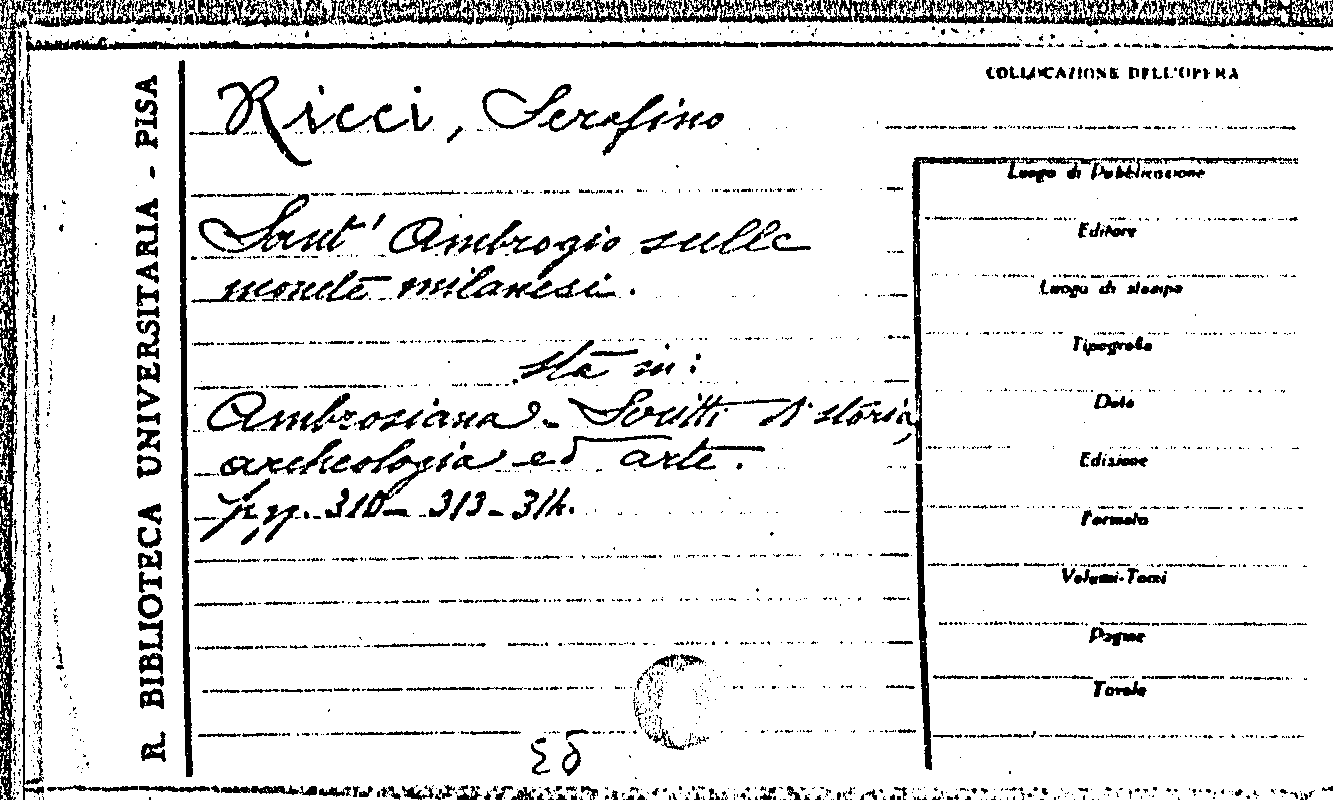 R. BIBLIOTECA UNIVERSITARIA - PISA
Ricci, Serafino
Sant' Ambrogio sulle
monete milanesi.
sta in:
Ambrosiana - Scritti di storia,
archeologia ed arte.
pp. 310 - 313 - 314.
COLLOCAZIONE DELL'OPERA
Luogo di Pubblicazione
Editore
Luogo di stampa
Tipografia
Data
Edizione
Formato
Volumi-Tomi
Pagine
Tavole